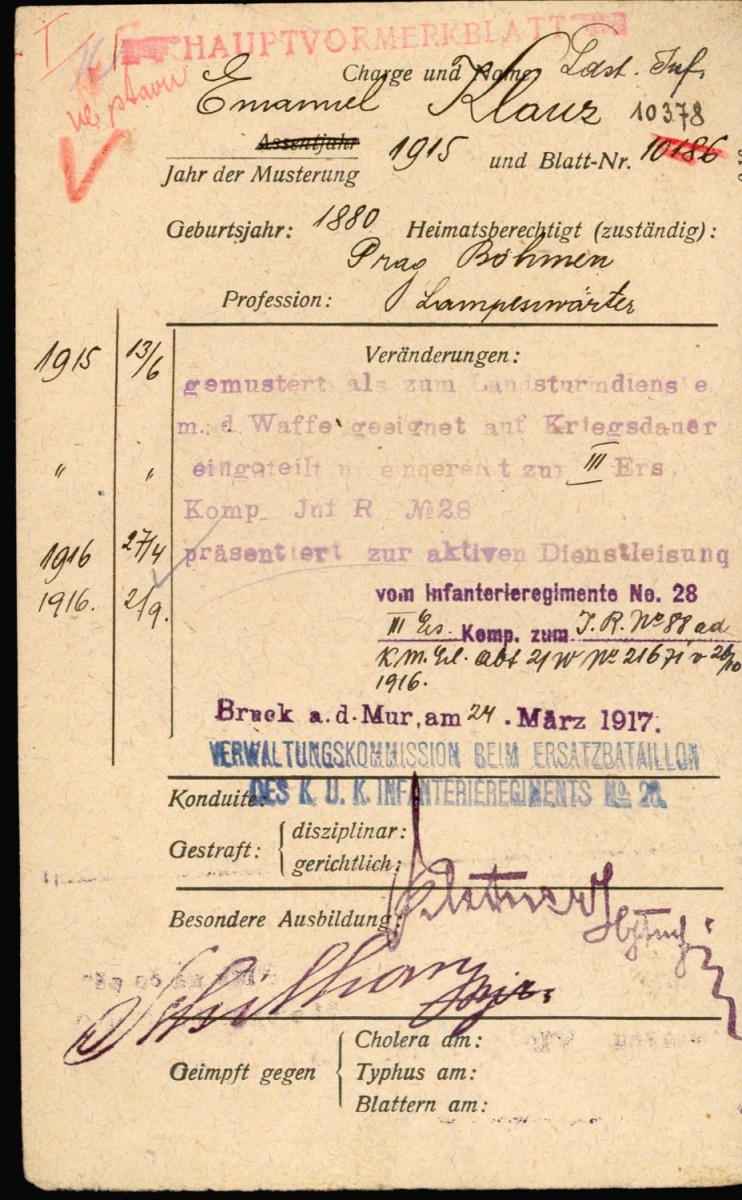 HAUPTVORMERKBLATT
Charge und Name Ldst. Inf.
Emanuel Klauz 10378
Assentjahr
Jahr der Musterung 1915 und Blatt-Nr. 10186
Geburtsjahr: 1880 Heimatsberechtigt (zuständig):
Prag Böhmen
Profession: Lampenwärter
Veränderungen:
1915 13/6 gemustert als zum Landsturmdienste
m. d. Waffe geeignet auf Kriegsdauer
" " eingeteilt zur III Ers
Komp Inf R №28
1916 27/4 präsentiert zur aktiven Dienstleisung
1916. 2/9. vom Infanterieregimente No. 28
III Ers. Komp. zum J. R. № 88 ad
K.M. Erl. Abt 2/W № 21671 v 26/10
1916.
Bruck a.d. Mur, am 24. März 1917.
VERWALTUNGSKOMMISSION BEIM ERSATZBATAILLON
DES K. U. K. INFANTERIEREGIMENTS № 28.
Konduite:
Gestraft: disziplinar:
gerichtlich:
Besondere Ausbildung:
Geimpft gegen Cholera am:
Typhus am:
Blattern am: